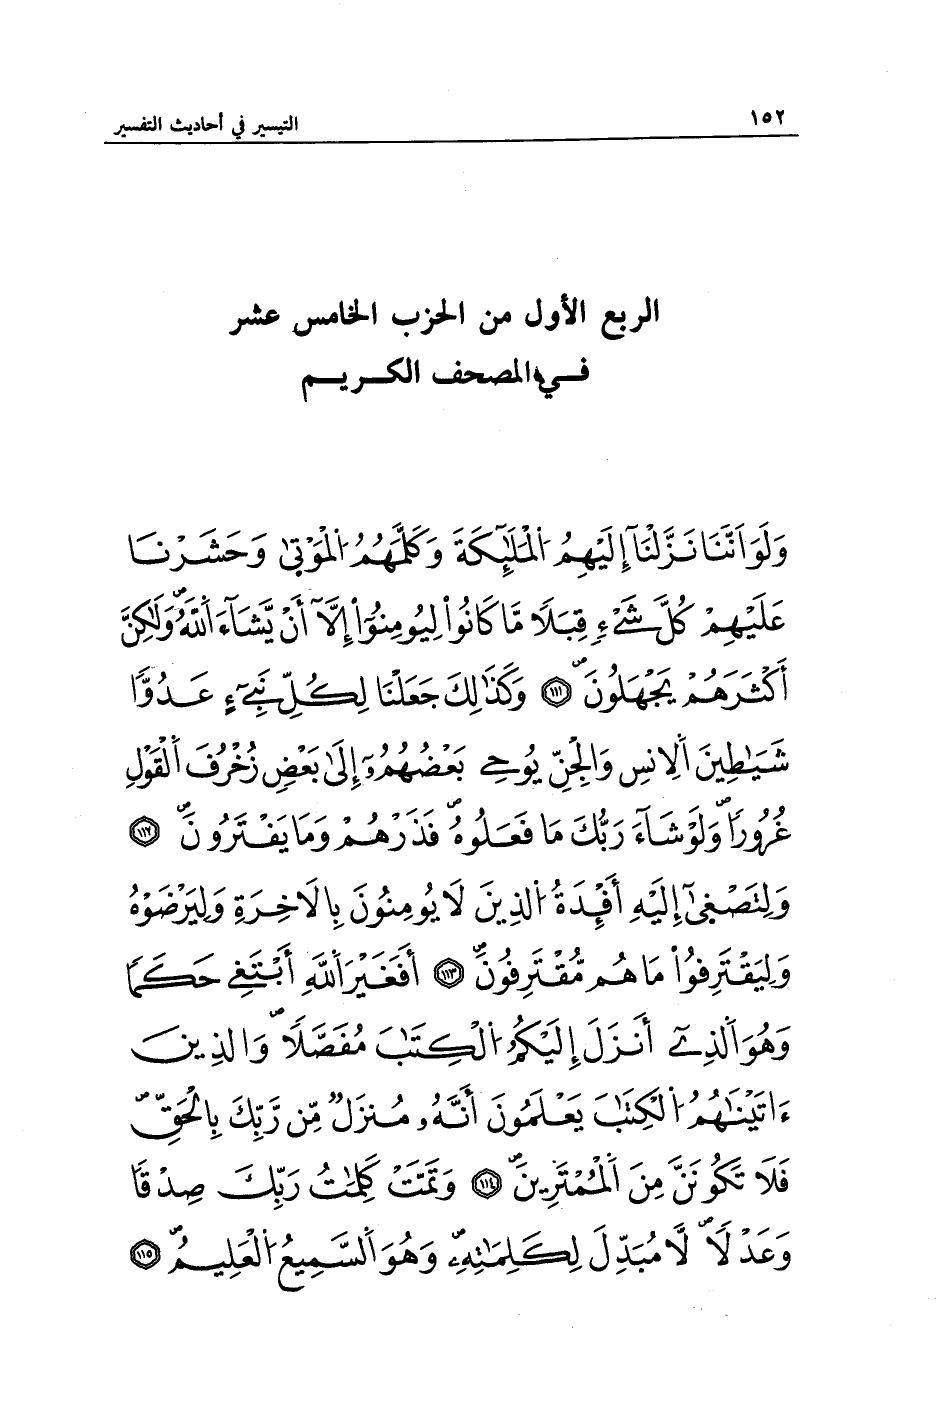 ١٥٢
التيسير في أحاديث التفسير
الربع الأول من الحزب الخامس عشر
في المصحف الكريم
وَلَوَ اَنَّنَا نَزَّلْنَآ إِلَيْهِمُ اُ۬لْمَلَٰٓئِكَةَ وَكَلَّمَهُمُ اُ۬لْمَوْت۪يٰ وَحَشَرْنَا
عَلَيْهِمْ كُلَّ شَےْءٖ قِبَلاٗ مَّا كَانُواْ لِيُومِنُوٓاْ إِلَّآ أَنْ يَّشَآءَ اَ۬للَّهُۖ وَلَٰكِنَّ
أَكْثَرَهُمْ يَجْهَلُونَۖ ١١١ وَكَذَٰلِكَ جَعَلْنَا لِكُلِّ نَبِےٓءٍ عَدُوّاٗ
شَيَٰطِينَ اَ۬لِانسِ وَالْجِنِّ يُوحِے بَعْضُهُمُۥٓ إِلَىٰ بَعْضٖ زُخْرُفَ اَ۬لْقَوْلِ
غُرُوراٗۖ وَلَوْ شَآءَ رَبُّكَ مَا فَعَلُوهُۖ فَذَرْهُمْ وَمَا يَفْتَرُونَۖ ١١٢
وَلِتَصْغ۪يٰٓ إِلَيْهِ أَفْـِٕدَةُ اُ۬لذِينَ لَا يُومِنُونَ بِالَاخِرَةِ وَلِيَرْضَوْهُ
وَلِيَقْتَرِفُواْ مَا هُم مُّقْتَرِفُونَۖ ١١٣ أَفَغَيْرَ اَ۬للَّهِ أَبْتَغِے حَكَماٗ
وَهُوَ اَ۬لذِےٓ أَنزَلَ إِلَيْكُمُ اُ۬لْكِتَٰبَ مُفَصَّلاٗۖ وَالذِينَ
ءَاتَيْنَٰهُمُ اُ۬لْكِتَٰبَ يَعْلَمُونَ أَنَّهُۥ مُنزَلٞ مِّن رَّبِّكَ بِالْحَقِّۖ
فَلَا تَكُونَنَّ مِنَ اَ۬لْمُمْتَرِينَۖ ١١٤ وَتَمَّتْ كَلِمَٰتُ رَبِّكَ صِدْقاٗ
وَعَدْلاٗۖ لَّا مُبَدِّلَ لِكَلِمَٰتِهِۦۖ وَهُوَ اَ۬لسَّمِيعُ اُ۬لْعَلِيمُۖ ١١٥